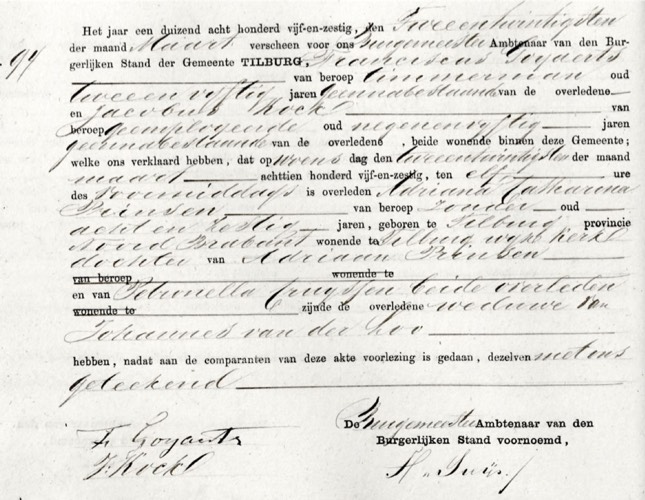 97
Het jaar een duizend acht honderd vijf-en-zestig, den Tweeentwintigsten
der maand Maart verscheen voor ons Burgemeester Ambtenaar van den Bur-
gerlijken Stand der Gemeente TILBURG, Franciscus Goyaerts
van beroep timmerman oud
twee en vijftig jaren geen nabestaande van de overledene
en Jacobus Kockl van
beroep geemployeerde oud negenenvijftig jaren
geen nabestaande van de overledene, beide wonende binnen deze Gemeente;
welke ons verklaard hebben, dat op woens dag den tweeentwintigsten der maand
maart achttien honderd vijf-en-zestig, ten elf ure
des voormiddags is overleden Adriana Catharina
Prinsen van beroep zonder oud
acht en zestig jaren, geboren te Tilburg provincie
Noord Brabant wonende te Tilburg wyk Kerk
dochter van Adriaan Prinsen
van beroep wonende te
en van Petronella beide overleden
wonende te zijnde de overledene weduwe van
Johannes van der Loo
hebben, nadat aan de comparanten van deze akte voorlezing is gedaan, dezelven met ons
geteekend
De Burgemeester Ambtenaar van den
Burgerlijken Stand voornoemd,
F. Goyaerts
J. Kockl